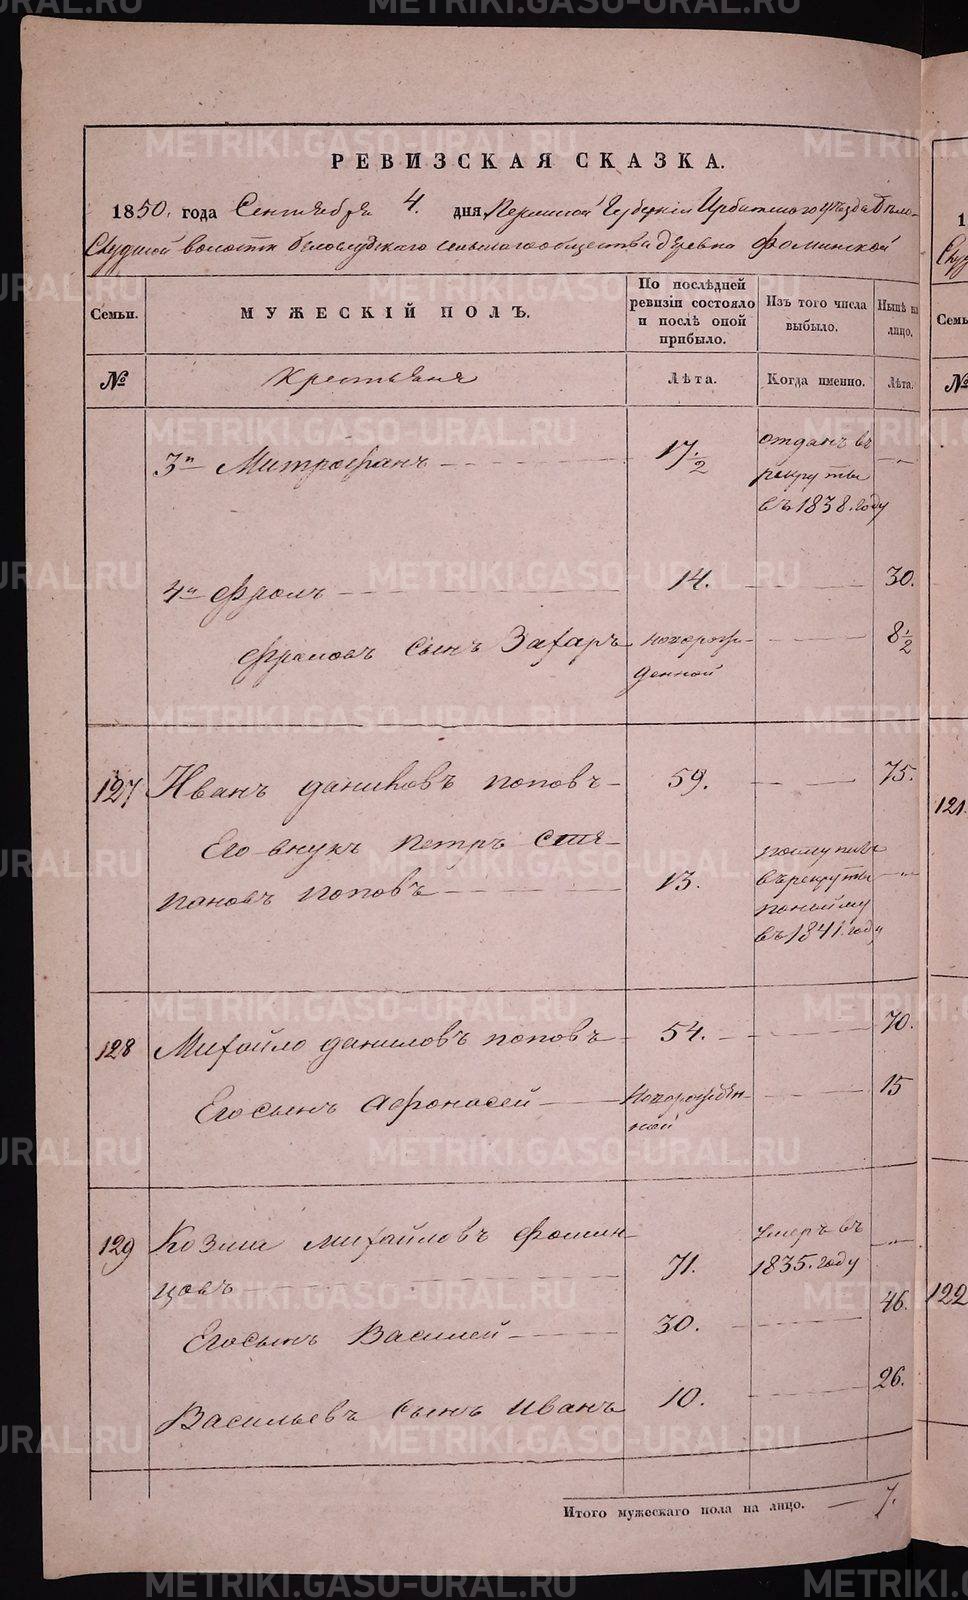 METRIKI.GASO-URAL.RU
РЕВИЗСКАЯ СКАЗКА.
1850. года Сентября 4. дня Пермской Губерніи Ирбитского уѣзда Бѣло-
Слудской волости Белослудского сельского общества деревни Фоминской
Семьи.
МУЖЕСКІЙ ПОЛЪ.
По послѣдней ревизіи состояло и послѣ оной прибыло.
Изъ того числа выбыло.
Нынѣ на лицо.
№
Крестьяне
Лѣта.
Когда именно.
Лѣта.
3й Митрофанъ 17 1/2 отданъ въ
рекруты
въ 1838. году
4й Фролъ 14. 30.
Фроловъ сынъ Захаръ новорож- 8 1/2
денной
127 Иванъ даниловъ поповъ 59. 75.
Его внукъ петръ сте-
пановъ поповъ 13. поступилъ
въ рекруты
по найму
въ 1841. году
128 Михайло даниловъ поповъ 54. 70.
Его сынъ Афонасей Новорожден- 15
ной
129 Козма михайловъ фомин-
цовъ 71. умеръ въ
1835. году
Его сынъ Василей 30. 46.
Васильевъ сынъ иванъ 10. 26.
Итого мужескаго пола на лицо. 7.
121.
122